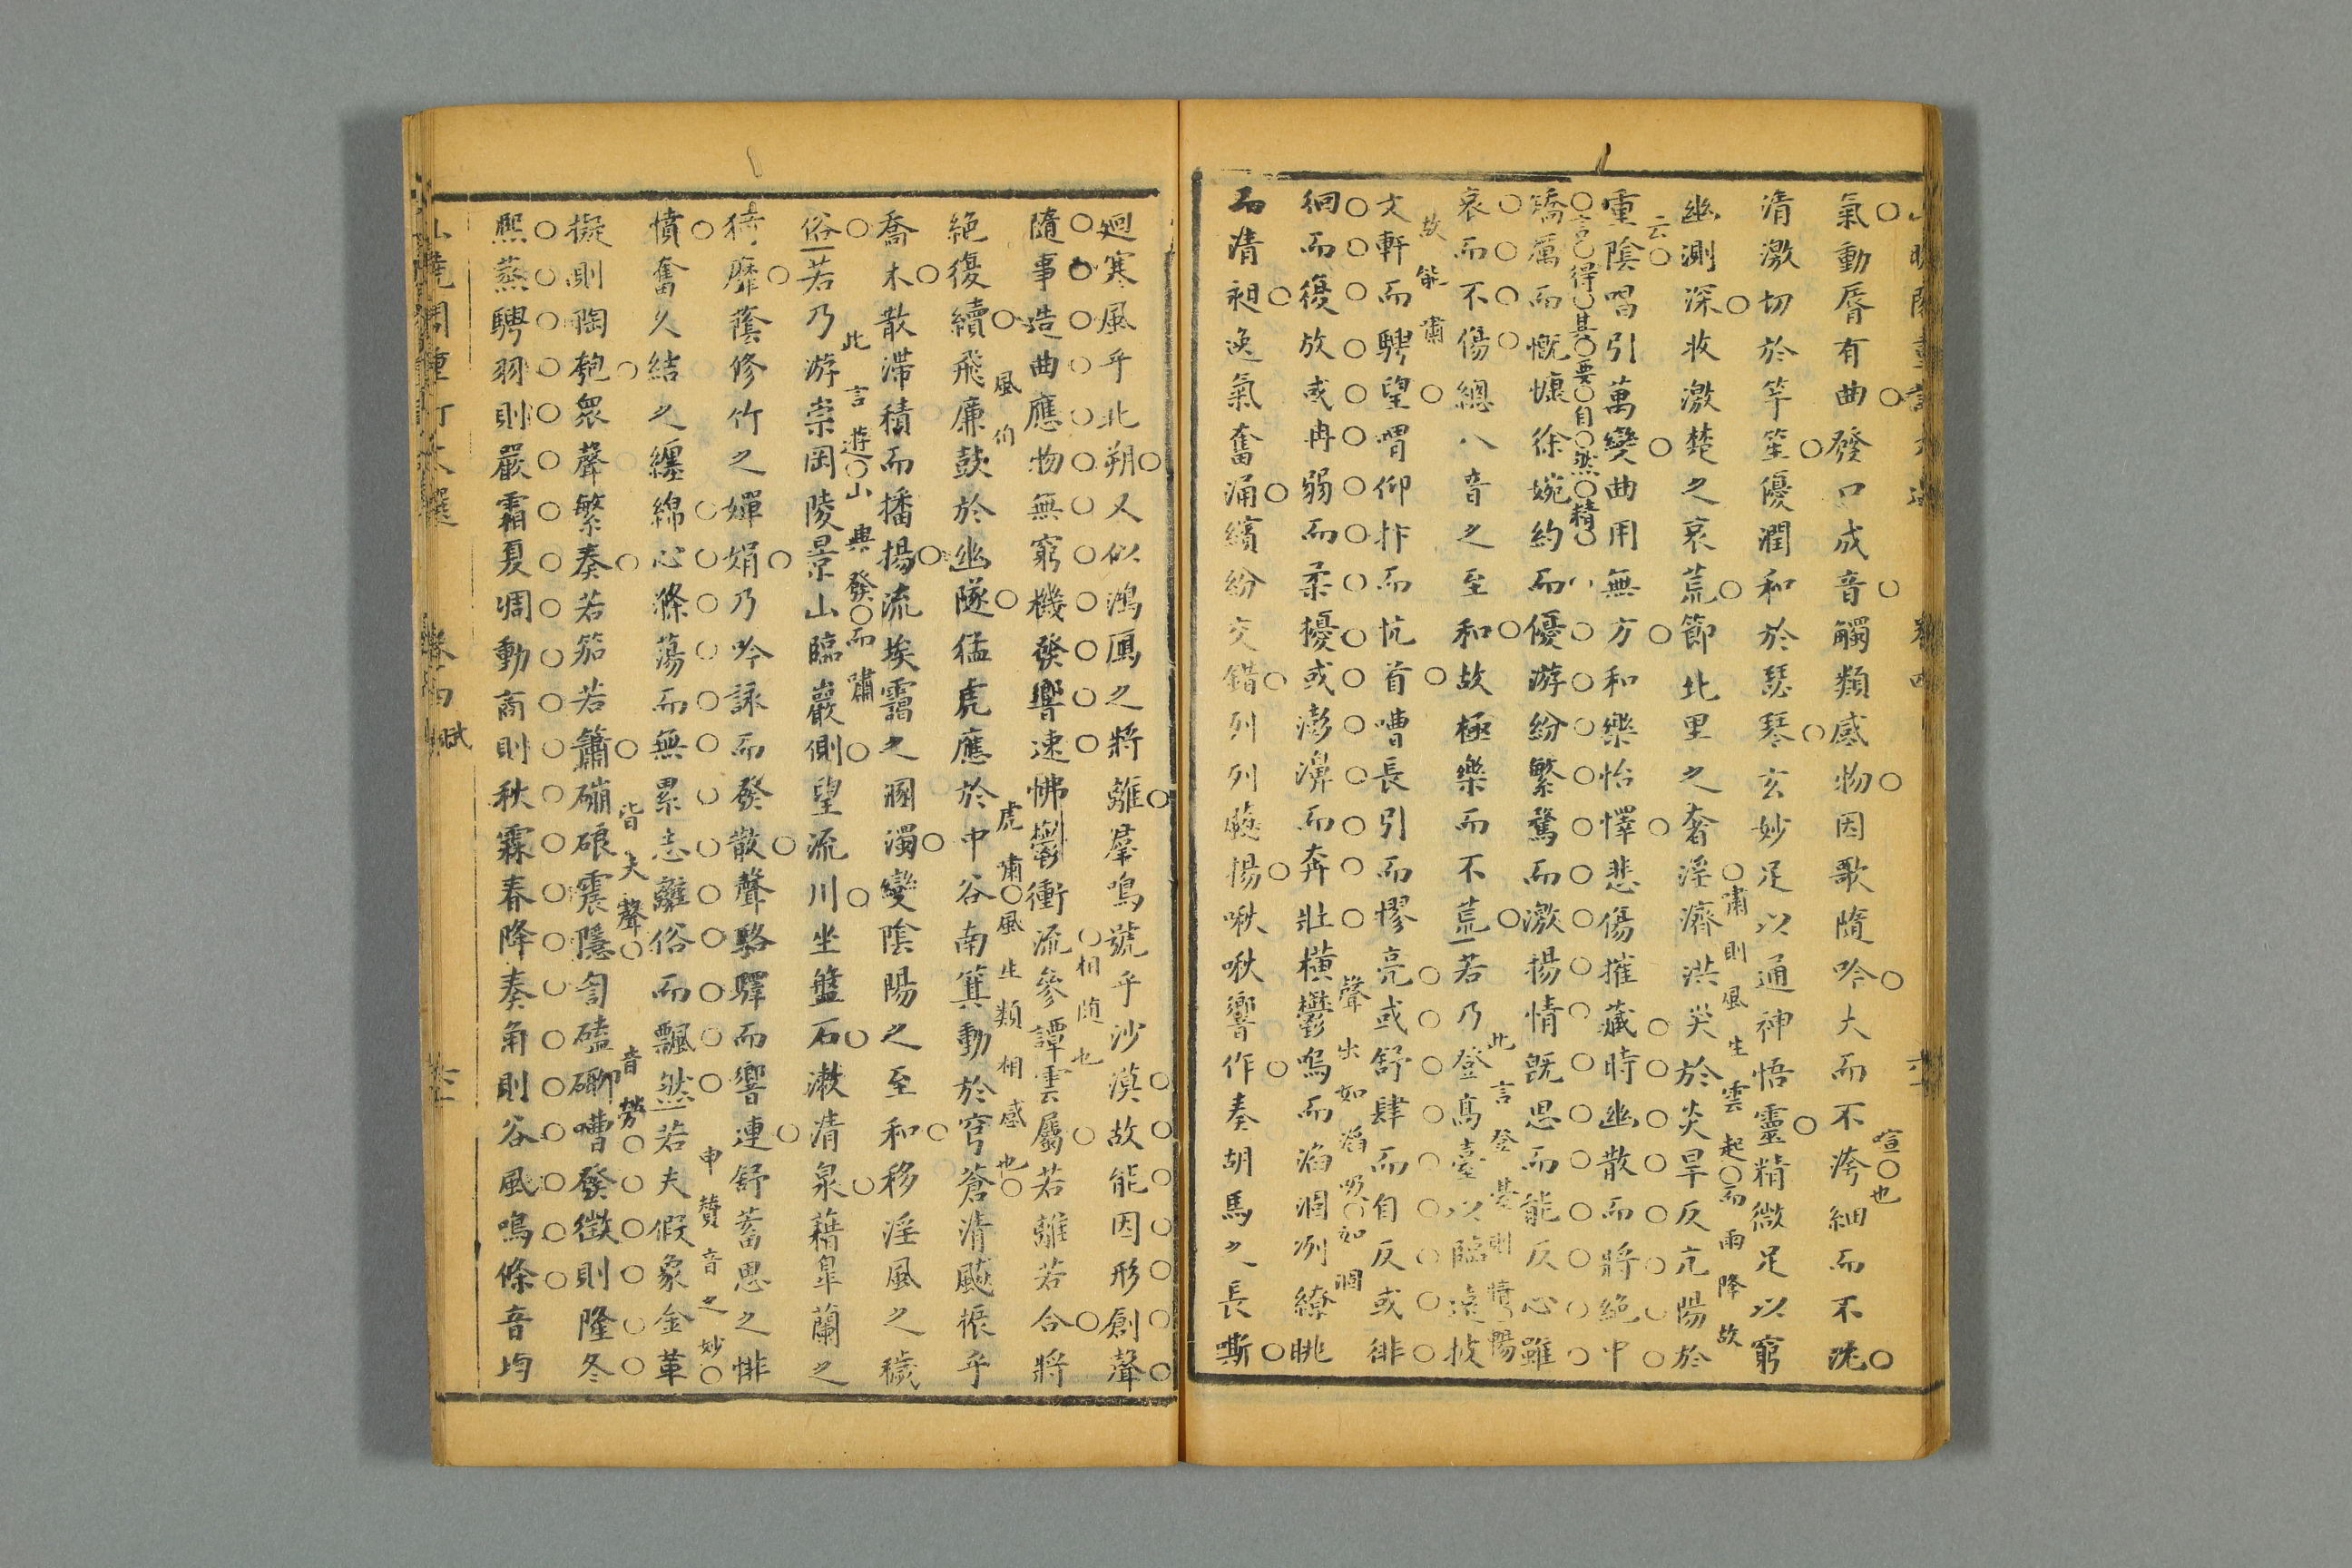 氣動脣有曲發口成音觸類感物因歌隨吟大而不洿細而不沈
喧也
清激切於竽笙優潤和於瑟琴玄妙足以通神悟靈精微足以窮
嘯則風生雲起而雨降故
幽測深收激楚之哀荒節北里之奢淫濟洪災於炎旱反亢陽於
云
重陰唱引萬變曲用無方和樂怡懌悲傷摧藏時幽散而將絕中
言得其要自然精
矯厲而慨慷徐婉約而優游紛繁騖而激揚情既思而能反心雖
此言登臺則情暢
哀而不傷總八音之至和故極樂而不荒若乃登高臺以臨遠披
故能嘯
文軒而騁望喟仰抃而忼首嘈長引而憀亮或舒肆而自反或徘
聲出如滔吸如涸
徊而復放或冉弱而柔擾或澎濞而奔壯橫鬱嗚而滔涸冽繚眺
而清昶逸氣奮涌繽紛交錯列列飈揚啾啾響作奏胡馬之長嘶
迴寒風乎北朔又似鴻鴈之將雛羣鳴號乎沙漠故能因形創聲
相随也
隨事造曲應物無窮機發響速怫鬱衝流參譚雲屬若離若合將
風伯虎嘯風生類相感也
絕復續飛廉鼓於幽隧猛虎應於中谷南箕動於穹蒼清飈振乎
喬木散滯積而播揚流埃靄之溷濁變陰陽之至和移淫風之穢
此言遊山興發而嘯
俗若乃游崇岡陵景山臨巖側望流川坐盤石漱清泉藉皐蘭之
猗靡蔭修竹之嬋娟乃吟詠而發散聲駱驛而響連舒蓄思之悱
申贊音之妙
憤奮久結之纏綿心滌蕩而無累志離俗而飄然若夫假象金革
皆大聲音勞
擬則陶匏衆聲繁奏若笳若簫磞硠震隱訇磕𠹗嘈發徵則隆冬
熈蒸騁羽則嚴霜夏凋動商則秋霖春降奏角則谷風鳴條音均
卷四 賦